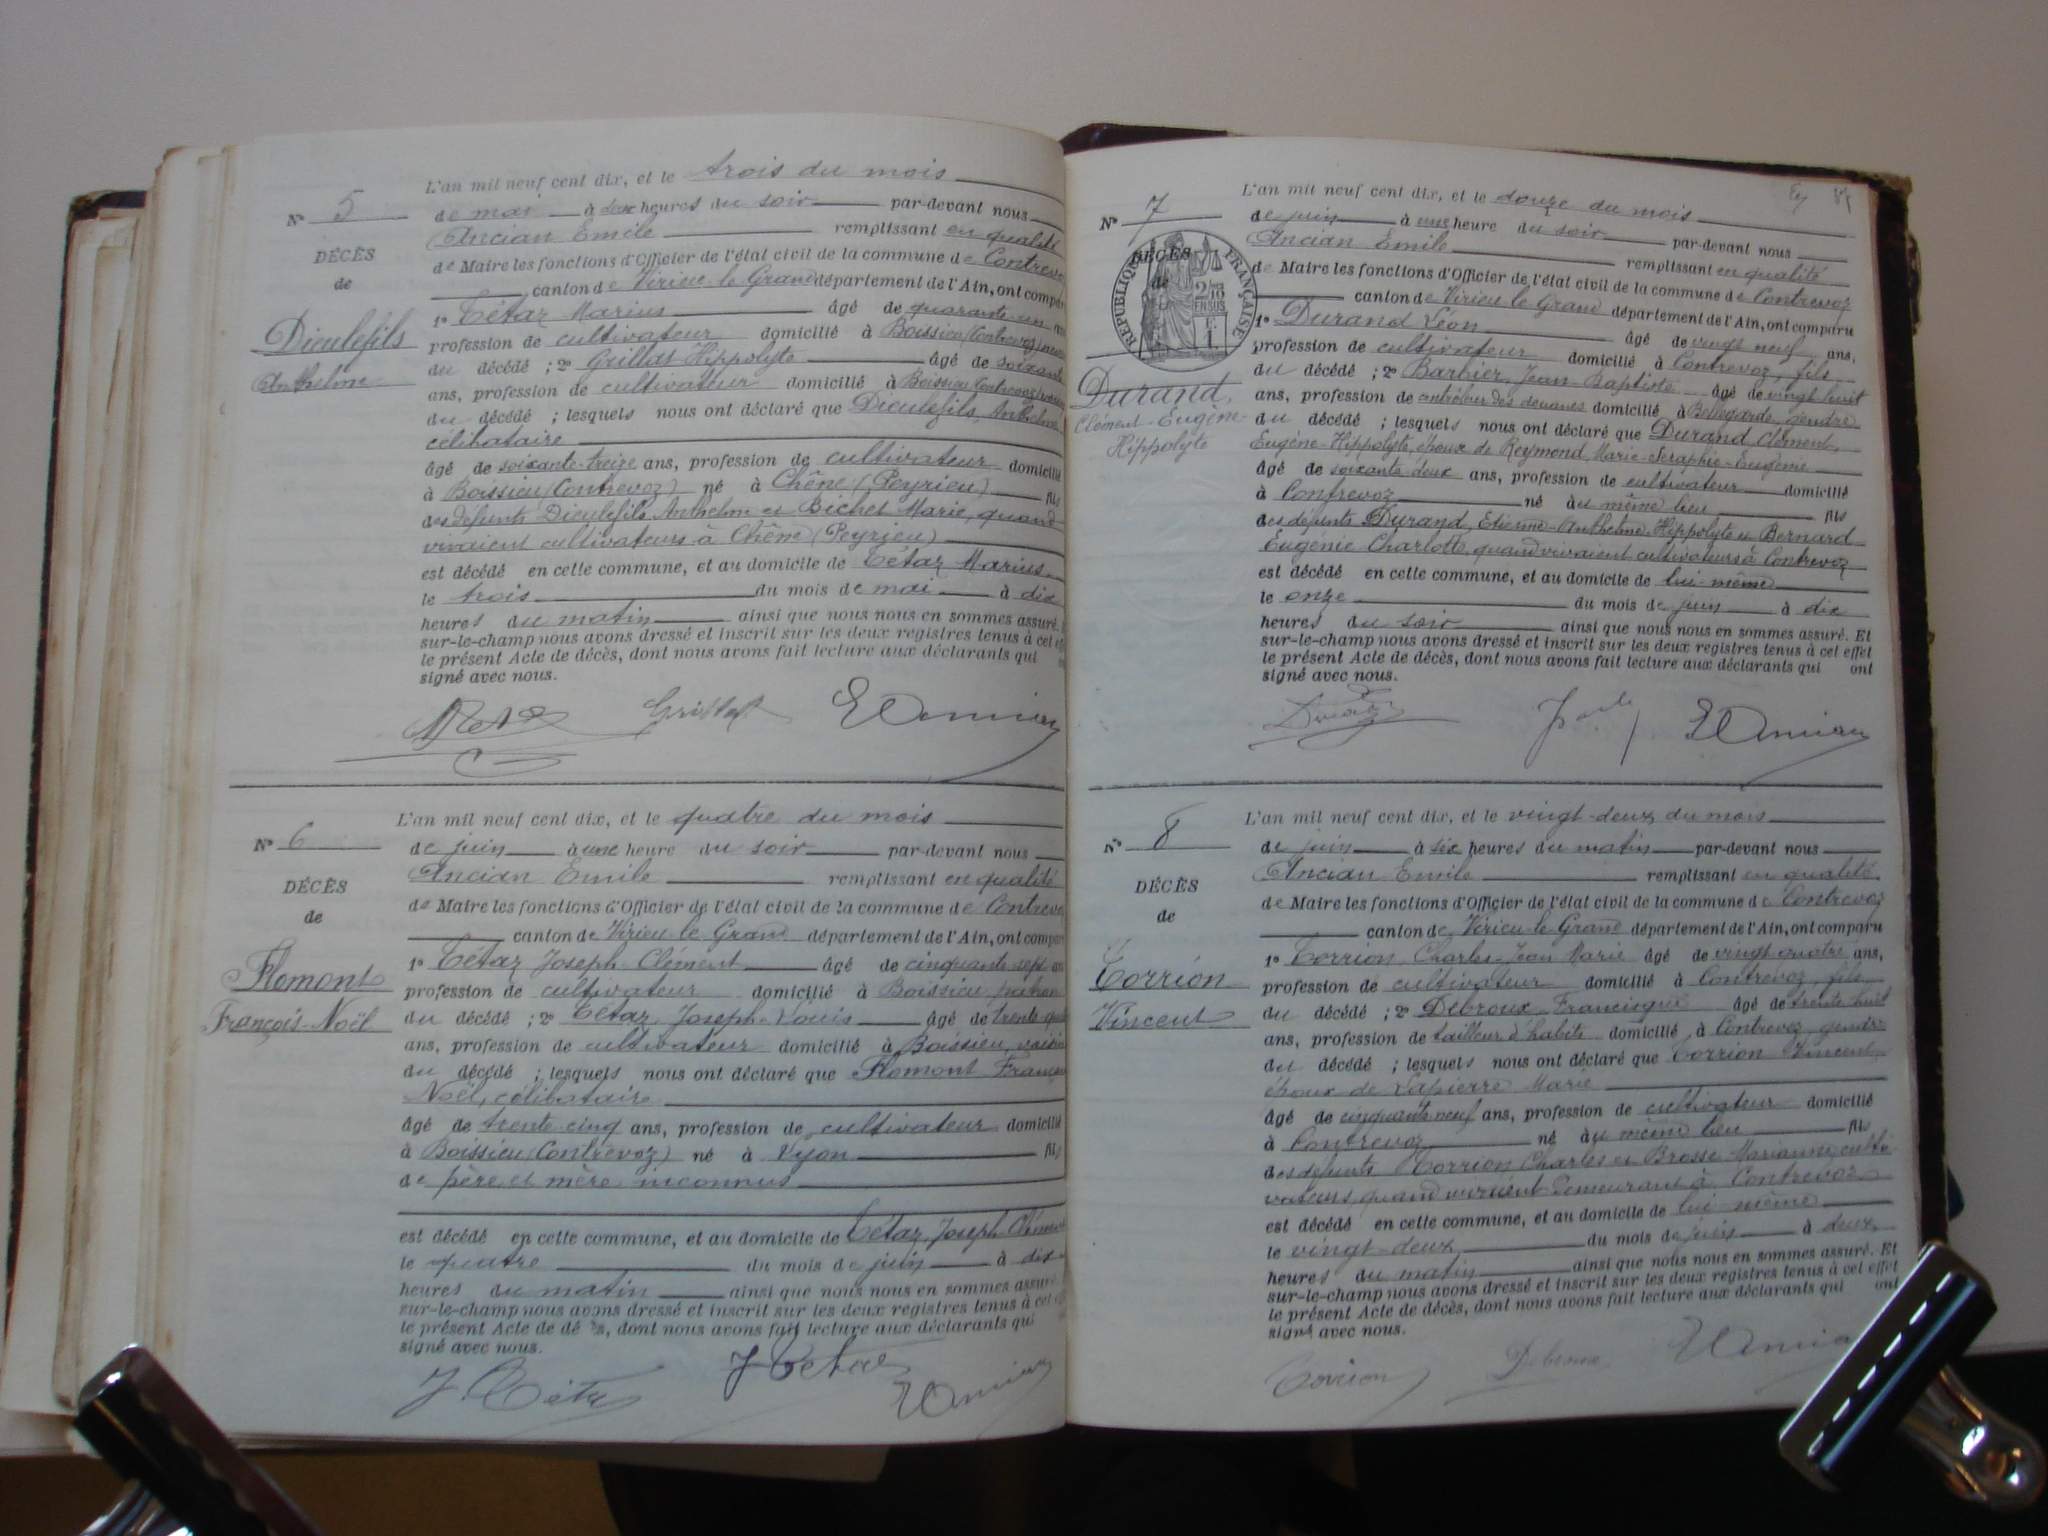 L'an mil neuf cent dix, et le trois du mois
N° 5 de mai à deux heures du soir par-devant nous
Ancian Emile remplissant en qualité
DÉCÈS de Maire les fonctions d'Officier de l'état civil de la commune de Contrevoz
de canton de Virieu-le-Grand département de l'Ain, ont comparu
1° Tétaz Marius âgé de quarante-un ans
Dieulefils profession de cultivateur domicilié à Boissieu (Contrevoz)
du décédé ; 2° Grillat Hippolyte âgé de soixante
Anthelme ans, profession de cultivateur domicilié à Boissieu (Contrevoz)
du décédé ; lesquels nous ont déclaré que Dieulefils, Anthelme,
célibataire
âgé de soixante-treize ans, profession de cultivateur domicilié
à Boissieu (Contrevoz) né à Chêne (Peyrieu) fils
des défunts Dieulefils Anthelme et Bichet Marie, quand
vivaient cultivateurs à Chêne (Peyrieu)
est décédé en cette commune, et au domicile de Tétaz Marius
le trois du mois de mai à dix
heures du matin ainsi que nous nous en sommes assuré. Et
sur-le-champ nous avons dressé et inscrit sur les deux registres tenus à cet effet
le présent Acte de décès, dont nous avons fait lecture aux déclarants qui
signé avec nous.
Grillat EAncian
L'an mil neuf cent dix, et le quatre du mois
N° 6 de juin à une heure du soir par-devant nous
Ancian Emile remplissant en qualité
DÉCÈS de Maire les fonctions d'Officier de l'état civil de la commune de Contrevoz
de canton de Virieu-le-Grand département de l'Ain, ont comparu
1° Tétaz Joseph-Clément âgé de cinquante-sept ans
Flomont profession de cultivateur domicilié à Boissieu, patron
François-Noël du décédé ; 2° Tétaz, Joseph-Louis âgé de trente
ans, profession de cultivateur domicilié à Boissieu, voisin
du décédé ; lesquels nous ont déclaré que Flomont François
Noël, célibataire
âgé de trente-cinq ans, profession de cultivateur domicilié
à Boissieu (Contrevoz) né à Lyon fils
de père et mère inconnus
est décédé en cette commune, et au domicile de Tétaz, Joseph-Clément
le quatre du mois de juin à dix
heures du matin ainsi que nous nous en sommes assuré.
sur-le-champ nous avons dressé et inscrit sur les deux registres tenus à cet effet
le présent Acte de décès, dont nous avons fait lecture aux déclarants qui
signé avec nous.
J. Tétaz J Tetaz EAncian
L'an mil neuf cent dix, et le douze du mois
N° 7 de juin à une heure du soir par-devant nous
Ancian Emile remplissant en qualité
DÉCÈS de Maire les fonctions d'Officier de l'état civil de la commune de Contrevoz
de canton de Virieu-le-Grand département de l'Ain, ont comparu
RÉPUBLIQUE FRANÇAISE
2/10 EN SUS
1° Durand Léon âgé de vingt-neuf ans,
profession de cultivateur domicilié à Contrevoz, fils
du décédé ; 2° Barbier, Jean-Baptiste âgé de vingt-huit
Durand, ans, profession de contrôleur des douanes domicilié à Bellegarde, gendre
Clément-Eugène- du décédé ; lesquels nous ont déclaré que Durand, Clément,
Hippolyte Eugène-Hippolyte, époux de Reymond, Marie-Séraphie-Eugénie
âgé de soixante-deux ans, profession de cultivateur domicilié
à Contrevoz né au même lieu fils
des défunts Durand, Etienne-Anthelme-Hippolyte et Bernard
Eugénie Charlotte, quand vivaient cultivateurs à Contrevoz
est décédé en cette commune, et au domicile de lui-même
le onze du mois de juin à dix
heures du soir ainsi que nous nous en sommes assuré. Et
sur-le-champ nous avons dressé et inscrit sur les deux registres tenus à cet effet
le présent Acte de décès, dont nous avons fait lecture aux déclarants qui ont
signé avec nous.
Durand EAncian
L'an mil neuf cent dix, et le vingt-deux du mois
N° 8 de juin à six heures du matin par-devant nous
Ancian Emile remplissant en qualité
DÉCÈS de Maire les fonctions d'Officier de l'état civil de la commune de Contrevoz
de canton de Virieu-le-Grand département de l'Ain, ont comparu
1° Torrion, Charles-Jean Marie âgé de vingt-quatre ans,
Torrion profession de cultivateur domicilié à Contrevoz, fils
Vincent du décédé ; 2° Debroux, Francisque âgé de trente-huit
ans, profession de tailleur d'habits domicilié à Contrevoz, gendre
du décédé ; lesquels nous ont déclaré que Torrion Vincent,
époux de Lapierre Marie
âgé de cinquante-neuf ans, profession de cultivateur domicilié
à Contrevoz né au même lieu fils
des défunts Torrion Charles et Brosse Marianne, culti-
vateurs, quand vivaient demeurant à Contrevoz
est décédé en cette commune, et au domicile de lui même
le vingt-deux du mois de juin à deux
heures du matin ainsi que nous nous en sommes assuré. Et
sur-le-champ nous avons dressé et inscrit sur les deux registres tenus à cet effet
le présent Acte de décès, dont nous avons fait lecture aux déclarants qui ont
signé avec nous.
Torrion Debroux EAncian